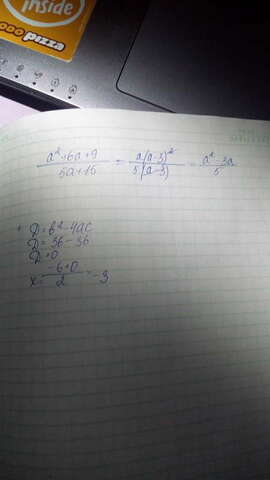 inside
pizza
a²+6a+9 / 5a+15 = a(a-3)² / 5(a-3) = a²-3a / 5
D=b²-4ac
D=36-36
D=0
x= -6+0 / 2 =-3